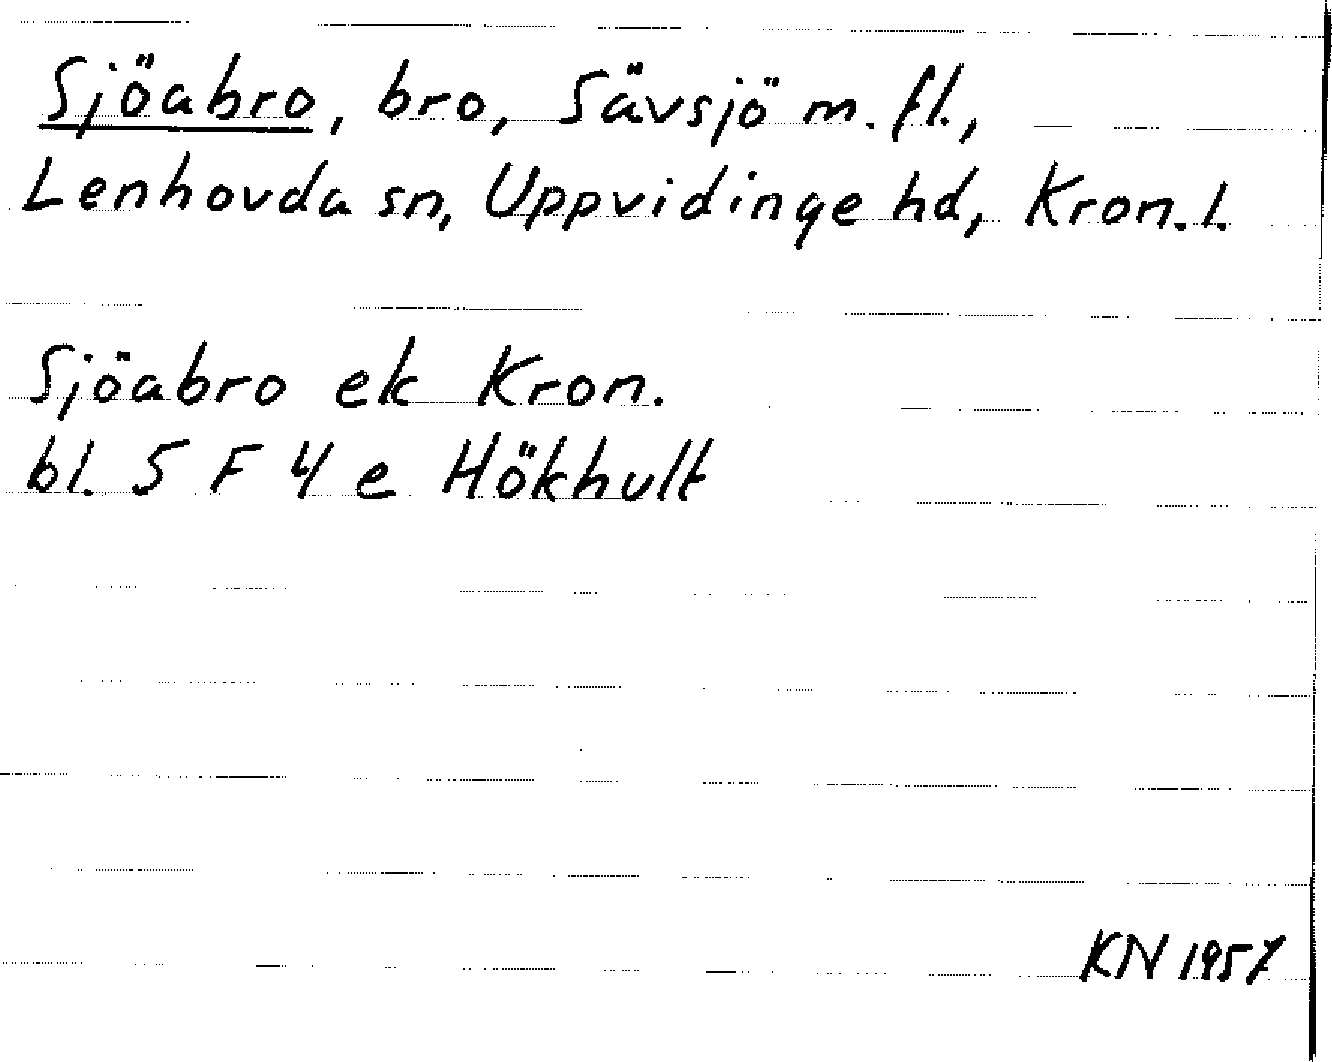 Sjöabro, bro, Sävsjö m. fl.,
Lenhovda sn, Uppvidinge hd, Kron. l.
Sjöabro ek Kron.
bl. 5 F 4 e Hökhult
KN 1957